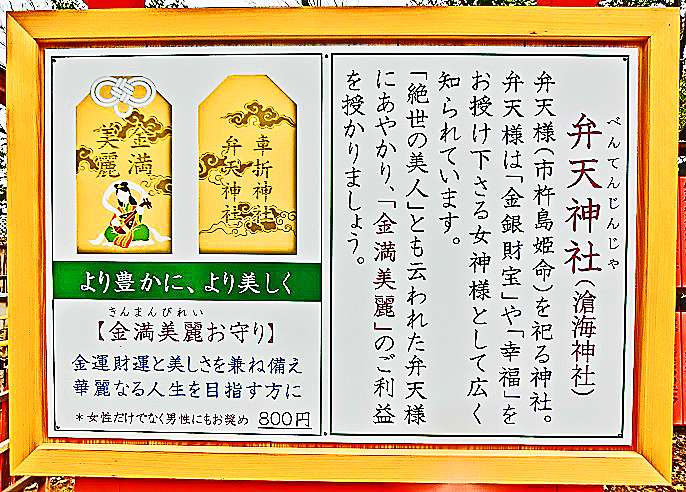 べんてんじんじゃ
弁天神社（滄海神社）
弁天様（市杵島姫命）を祀る神社。
弁天様は「金銀財宝」や「幸福」を
お授け下さる女神様として広く
知られています。
「絶世の美人」とも云われた弁天様
にあやかり、「金満美麗」のご利益
を授かりましょう。
金満
美麗
車折神社
弁天神社
より豊かに、より美しく
きんまんびれい
【金満美麗お守り】
金運財運と美しさを兼ね備え
華麗なる人生を目指す方に
＊女性だけでなく男性にもお奨め 800円